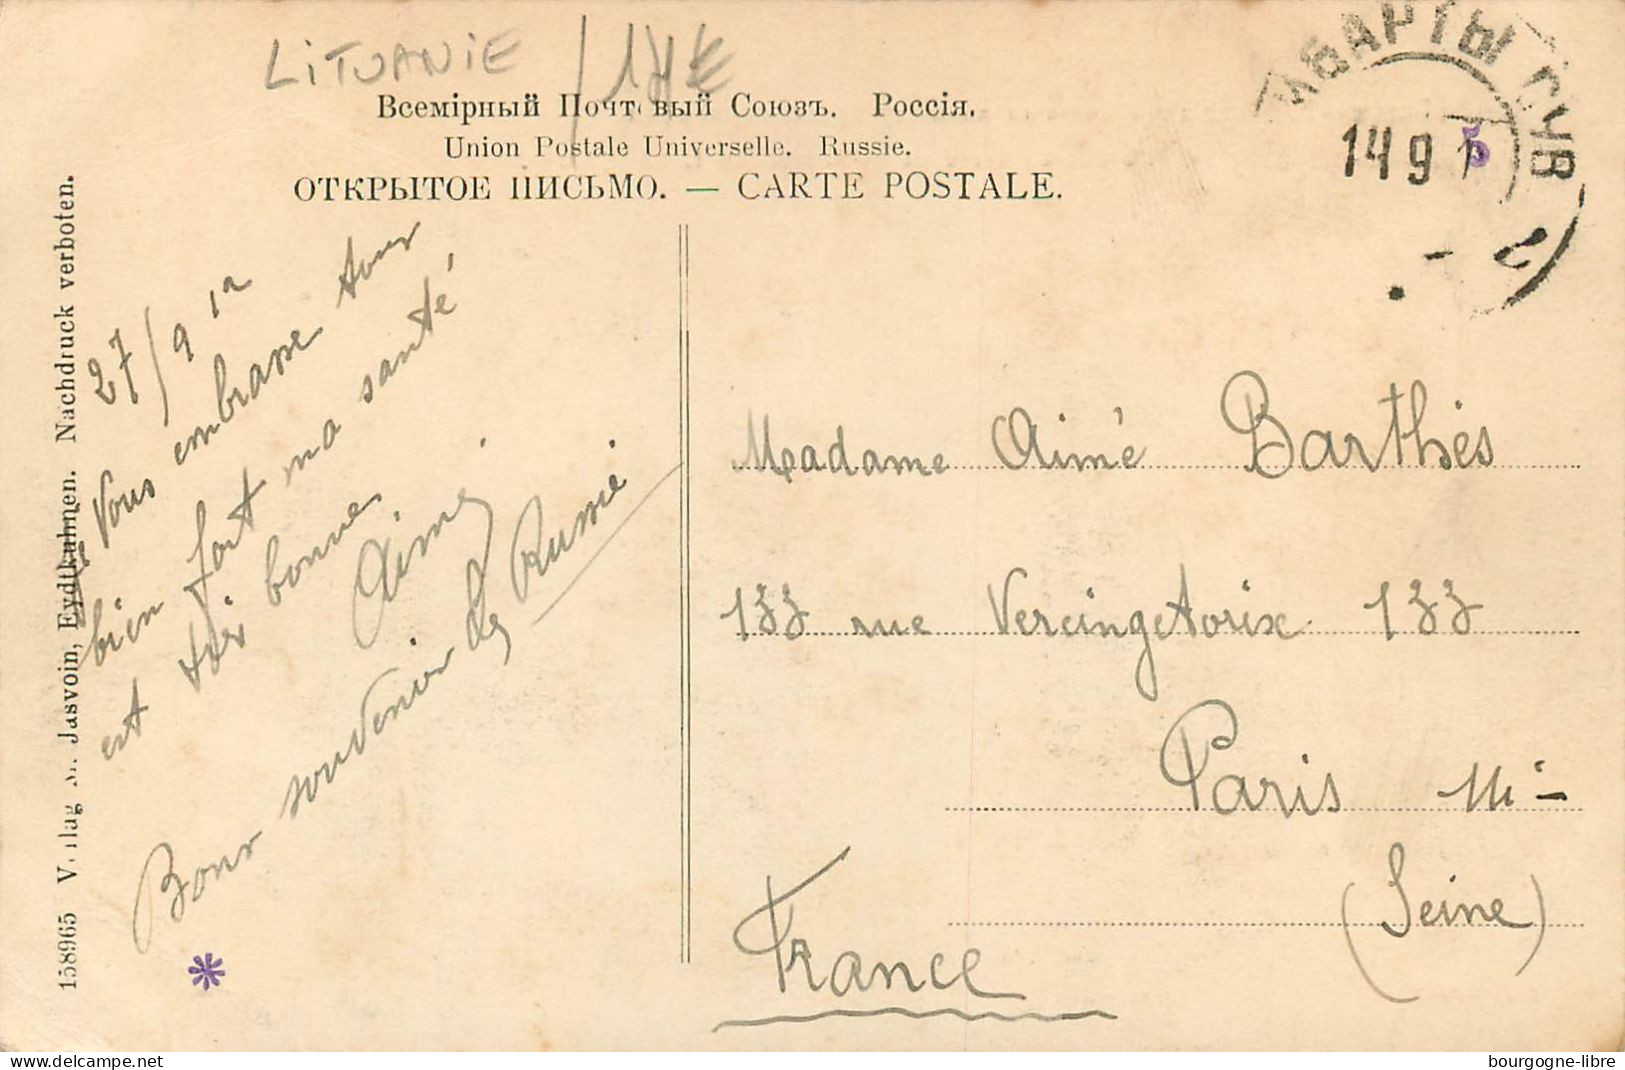 LITUANIE
Всемірный Почтовый Союзъ. Россія.
Union Postale Universelle. Russie.
ОТКРЫТОЕ ПИСЬМО. — CARTE POSTALE.
КИБАРТЫ СУВ
14 9
5
2
158965 Verlag M. Jasvoin, Eydtkuhnen. Nachdruck verboten.
27/9 12
Vous embrasse tous
bien fort ma santé
est très bonne
Aimé
Bon souvenir de Russie
Madame Aimé Barthés
133 rue Vercingetorix 133
Paris
(Seine)
France
bourgogne-libre